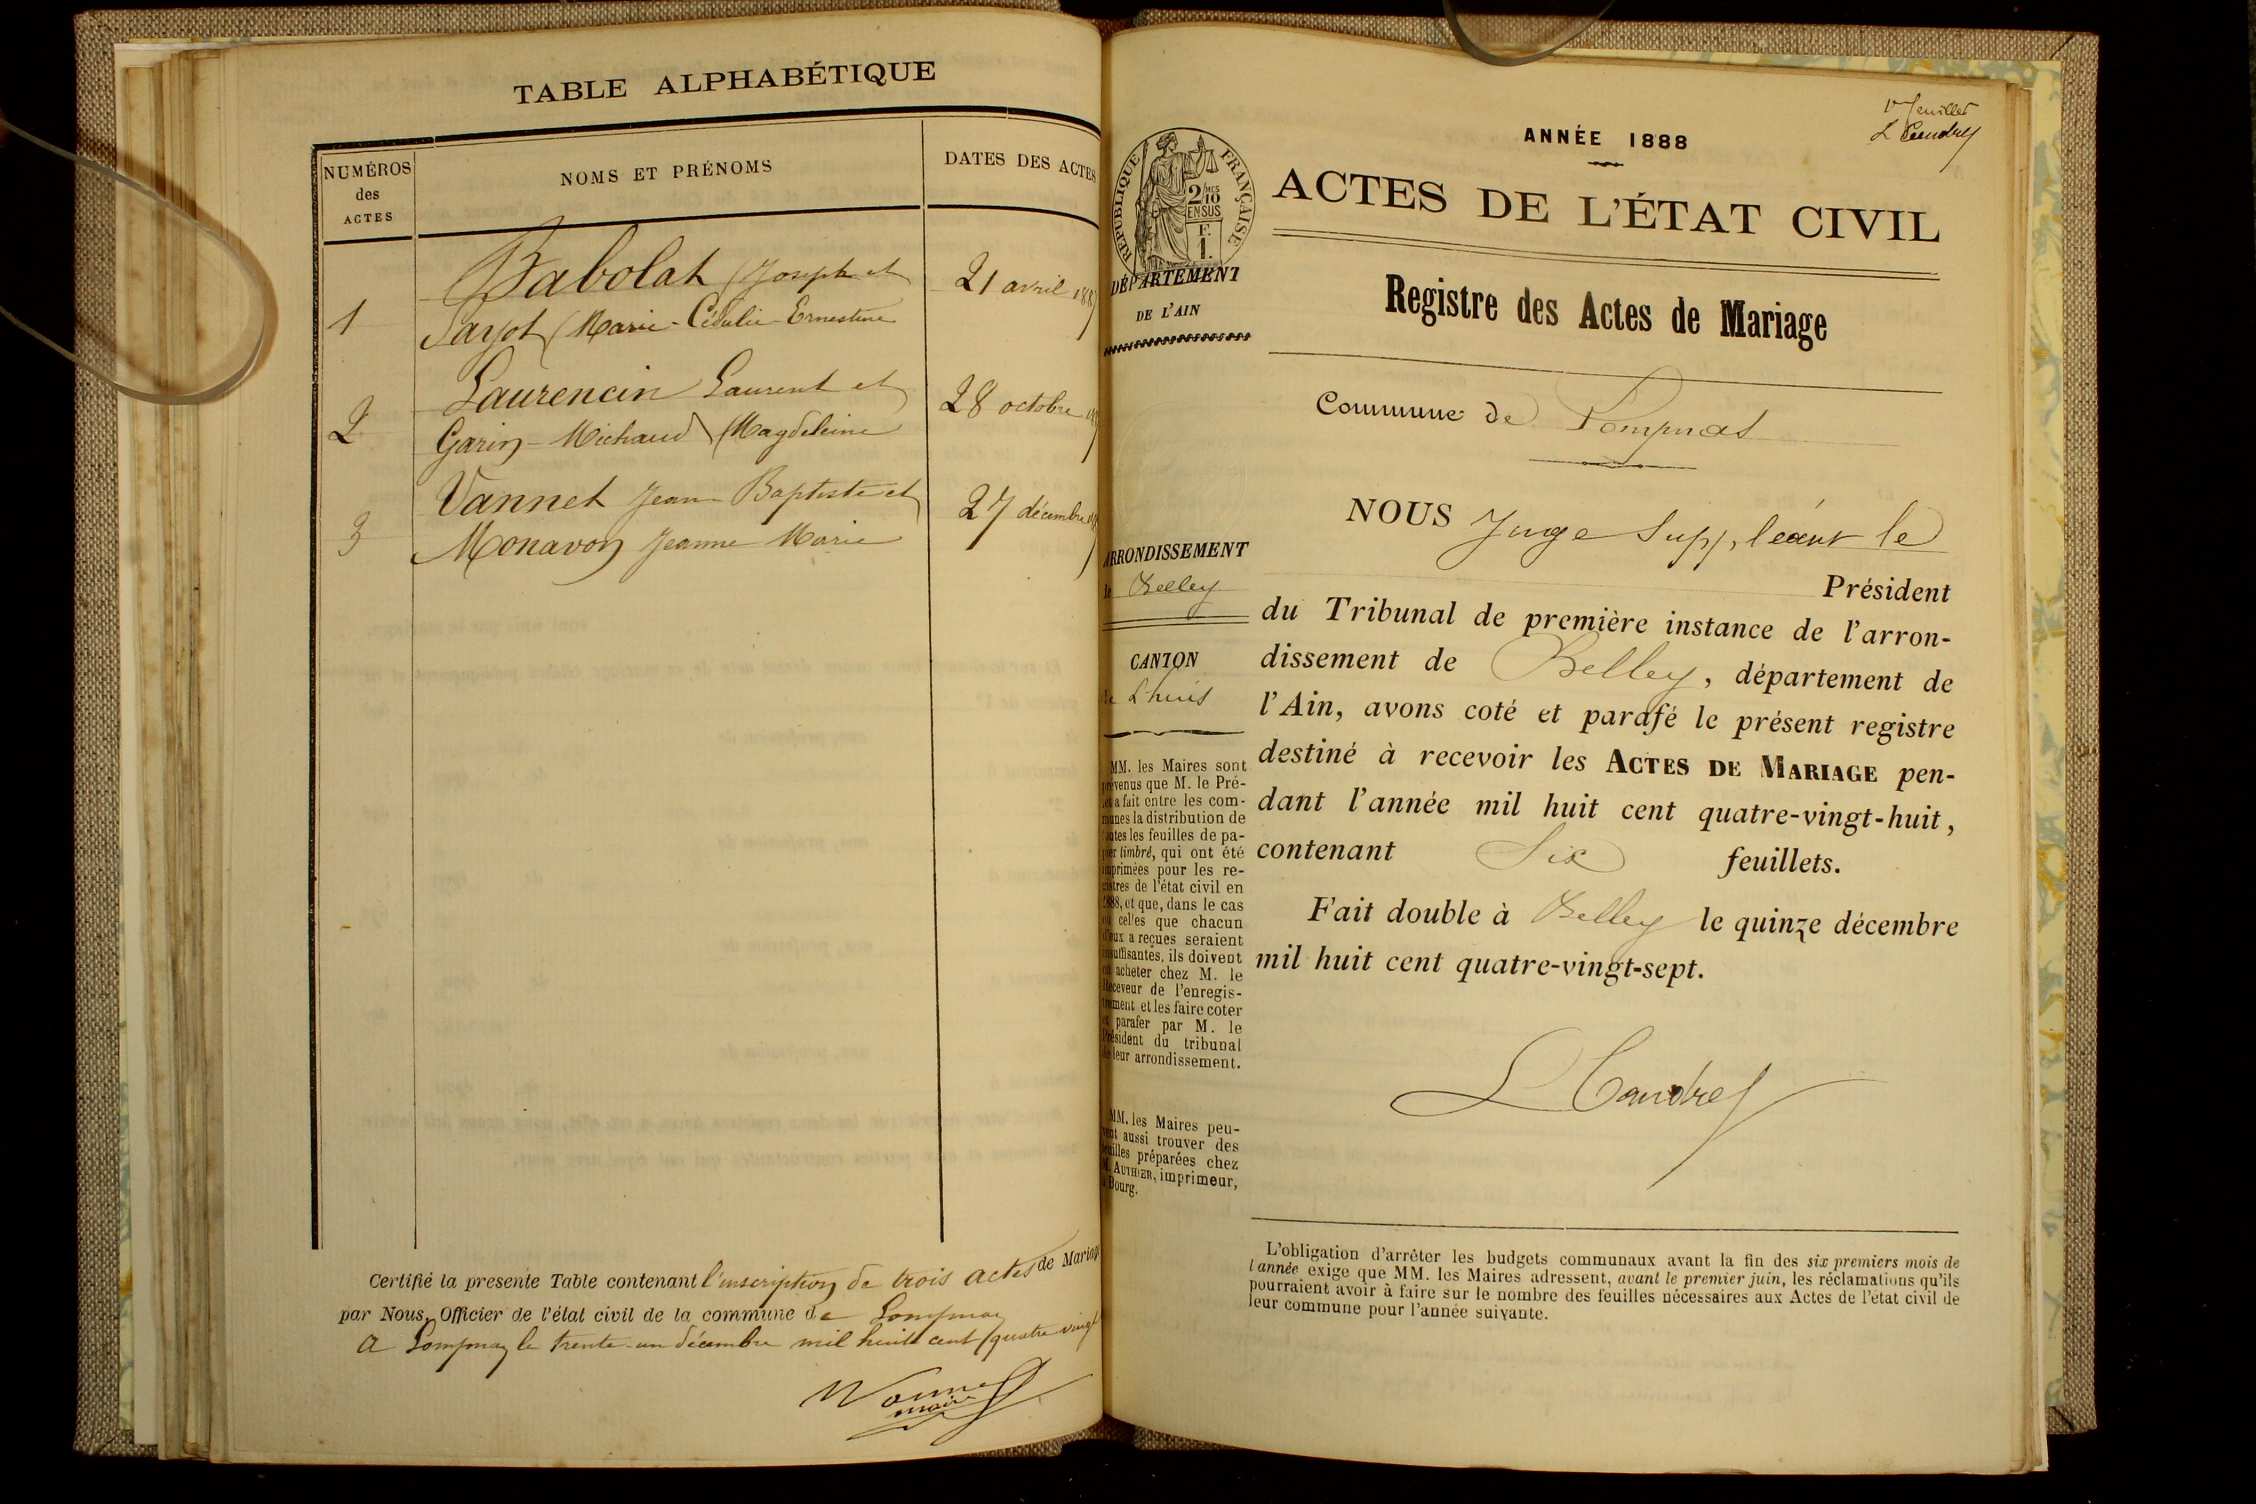 TABLE ALPHABÉTIQUE
NUMÉROS
des
ACTES
NOMS ET PRÉNOMS
DATES DES ACTES
1
Babolat Joseph et
21 avril 1887
Payot Marie-Cédulie Ernestine
2
Laurencin Laurent et
28 octobre
Garin-Michaud Magdeleine
3
Vannet Jean Baptiste et
27 décembre
Monavon Jeanne Marie
Certifié la présente Table contenant l'inscription de trois actes de Mariage
par Nous, Officier de l'état civil de la commune de Lompnaz
A Lompnaz le trente-un décembre mil huit cent quatre vingt
maire
1er feuillet
ANNÉE 1888
RÉPUBLIQUE FRANÇAISE
2/10
EN SUS
F.
1.
ACTES DE L'ÉTAT CIVIL
DÉPARTEMENT
DE L'AIN
Registre des Actes de Mariage
Commune de Lompnas
ARRONDISSEMENT
de Belley
CANTON
de Lhuis
NOUS Juge Suppléant le
Président
du Tribunal de première instance de l'arron-
dissement de Belley, département de
l'Ain, avons coté et parafé le présent registre
destiné à recevoir les ACTES DE MARIAGE pen-
dant l'année mil huit cent quatre-vingt-huit,
contenant Six feuillets.
Fait double à Belley le quinze décembre
mil huit cent quatre-vingt-sept.
MM. les Maires sont
prévenus que M. le Pré-
fet a fait entre les com-
munes la distribution de
toutes les feuilles de pa-
pier timbré, qui ont été
imprimées pour les re-
gistres de l'état civil en
1888, et que, dans le cas
où celles que chacun
d'eux a reçues seraient
insuffisantes, ils doivent
en acheter chez M. le
Receveur de l'enregis-
trement et les faire coter
et parafer par M. le
Président du tribunal
de leur arrondissement.
MM. les Maires peu-
vent aussi trouver des
feuilles préparées chez
M. AUTHIER, imprimeur,
à Bourg.
L'obligation d'arrêter les budgets communaux avant la fin des six premiers mois de
l'année exige que MM. les Maires adressent, avant le premier juin, les réclamations qu'ils
pourraient avoir à faire sur le nombre des feuilles nécessaires aux Actes de l'état civil de
leur commune pour l'année suivante.